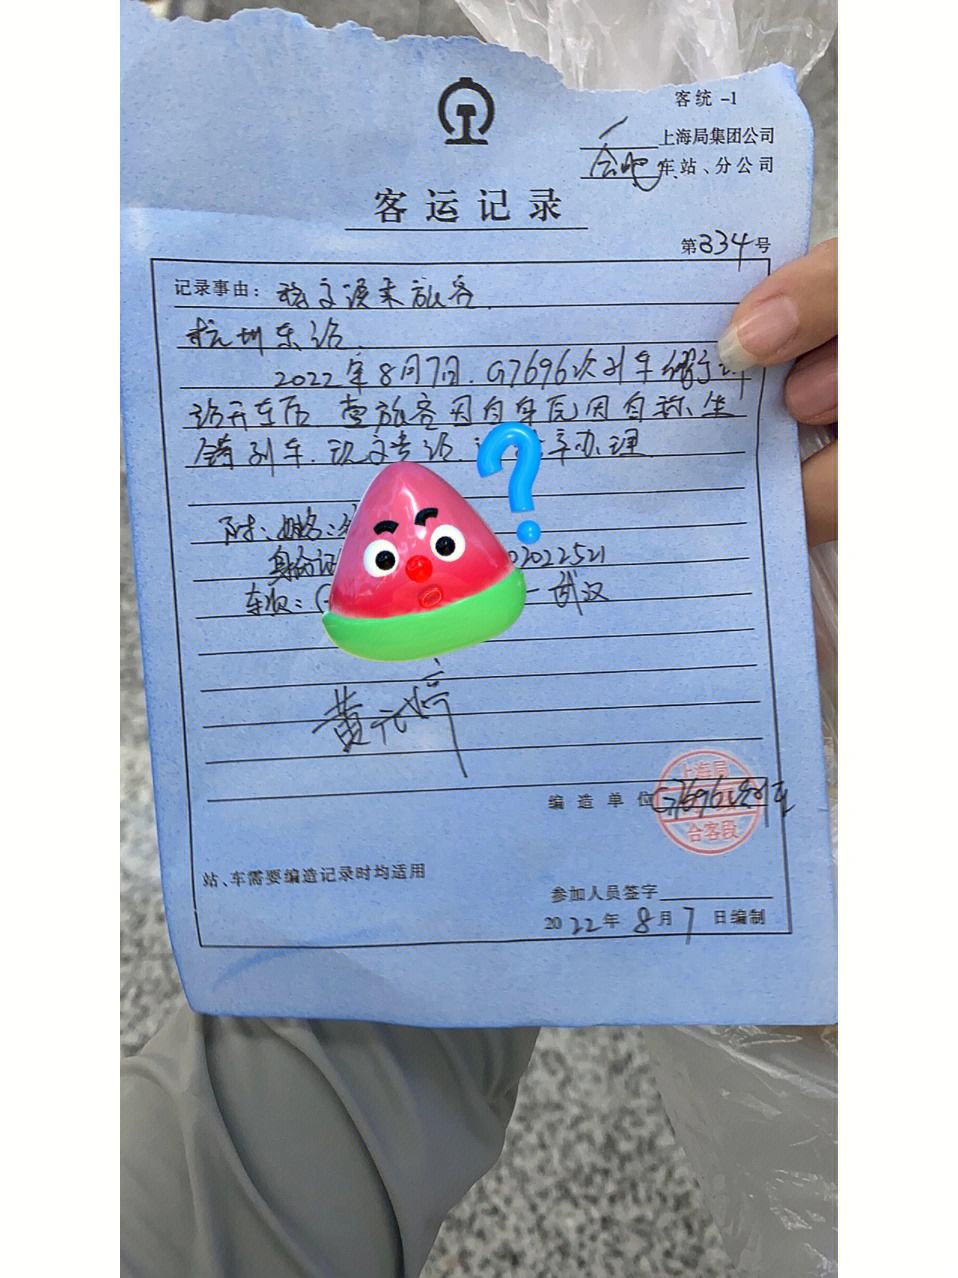 客统-1
上海局集团公司
合肥车站、分公司
客运记录
第334号
记录事由：移交误乘旅客
杭州东站
2022年8月7日.G7696次列车
站开车后 查旅客因自身原因自称坐
错列车.现交贵站. 办理
附：姓名：
身份证 02022521
车次： 武汉
黄
编造单位 G7696次列车
上海局
合客段
站、车需要编造记录时均适用
参加人员签字
2022年8月7日编制